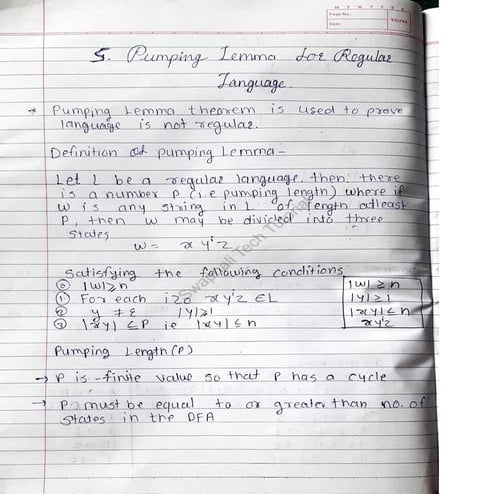 M T W T F S S
Page No.:
Date:
YOUVA
5. Pumping Lemma for Regular
Language.
* Pumping Lemma theorem is used to prove
language is not regular.
Definition of pumping Lemma:-
Let L be a regular language. then there
is a number P (i.e pumping length) where if
w is any string in L of length atleast
P, then w may be divided into three
states
w = xyⁱz
Satisfying the following conditions
⓪ |w|≥n
① For each i≥0 xyⁱz ∈L
② y ≠ ε |y|≥1
③ |xy| ≤P ie |xy|≤n
|w|≥n
|y|≥1
|xy|≤n
xyⁱz
Pumping Length (P)
→ P is finite value so that P has a cycle
→ P must be equal to or greater than no. of
states in the DFA
Swapnali Tech Tutorials